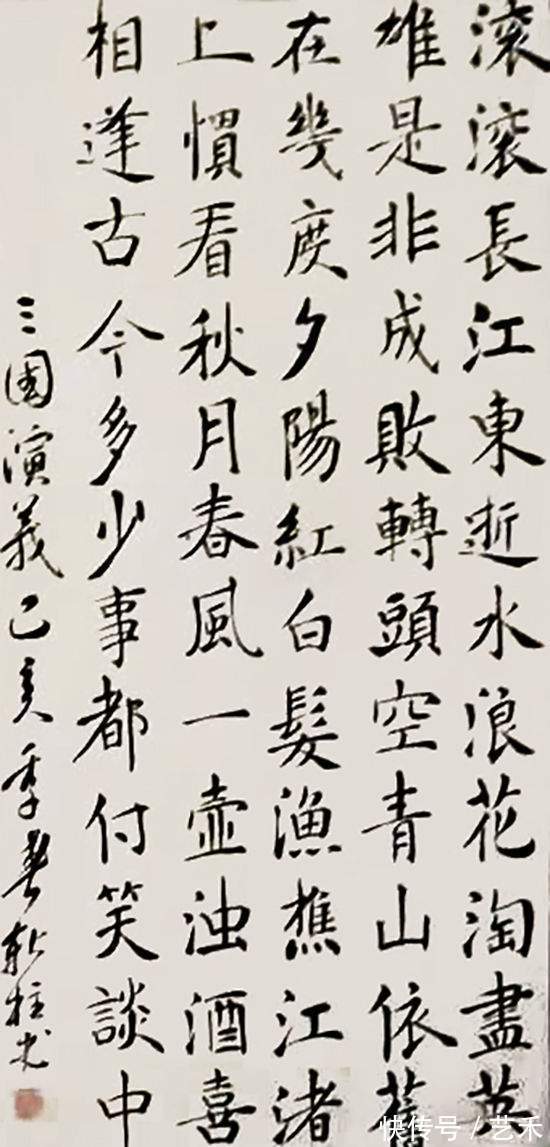 滚滚長江東逝水浪花淘盡英
雄是非成敗轉頭空青山依舊
在幾度夕陽紅白髮渔樵江渚
上慣看秋月春風一壶浊酒喜
相逢古今多少事都付笑談中
三國演義己亥季春
快传号/艺禾